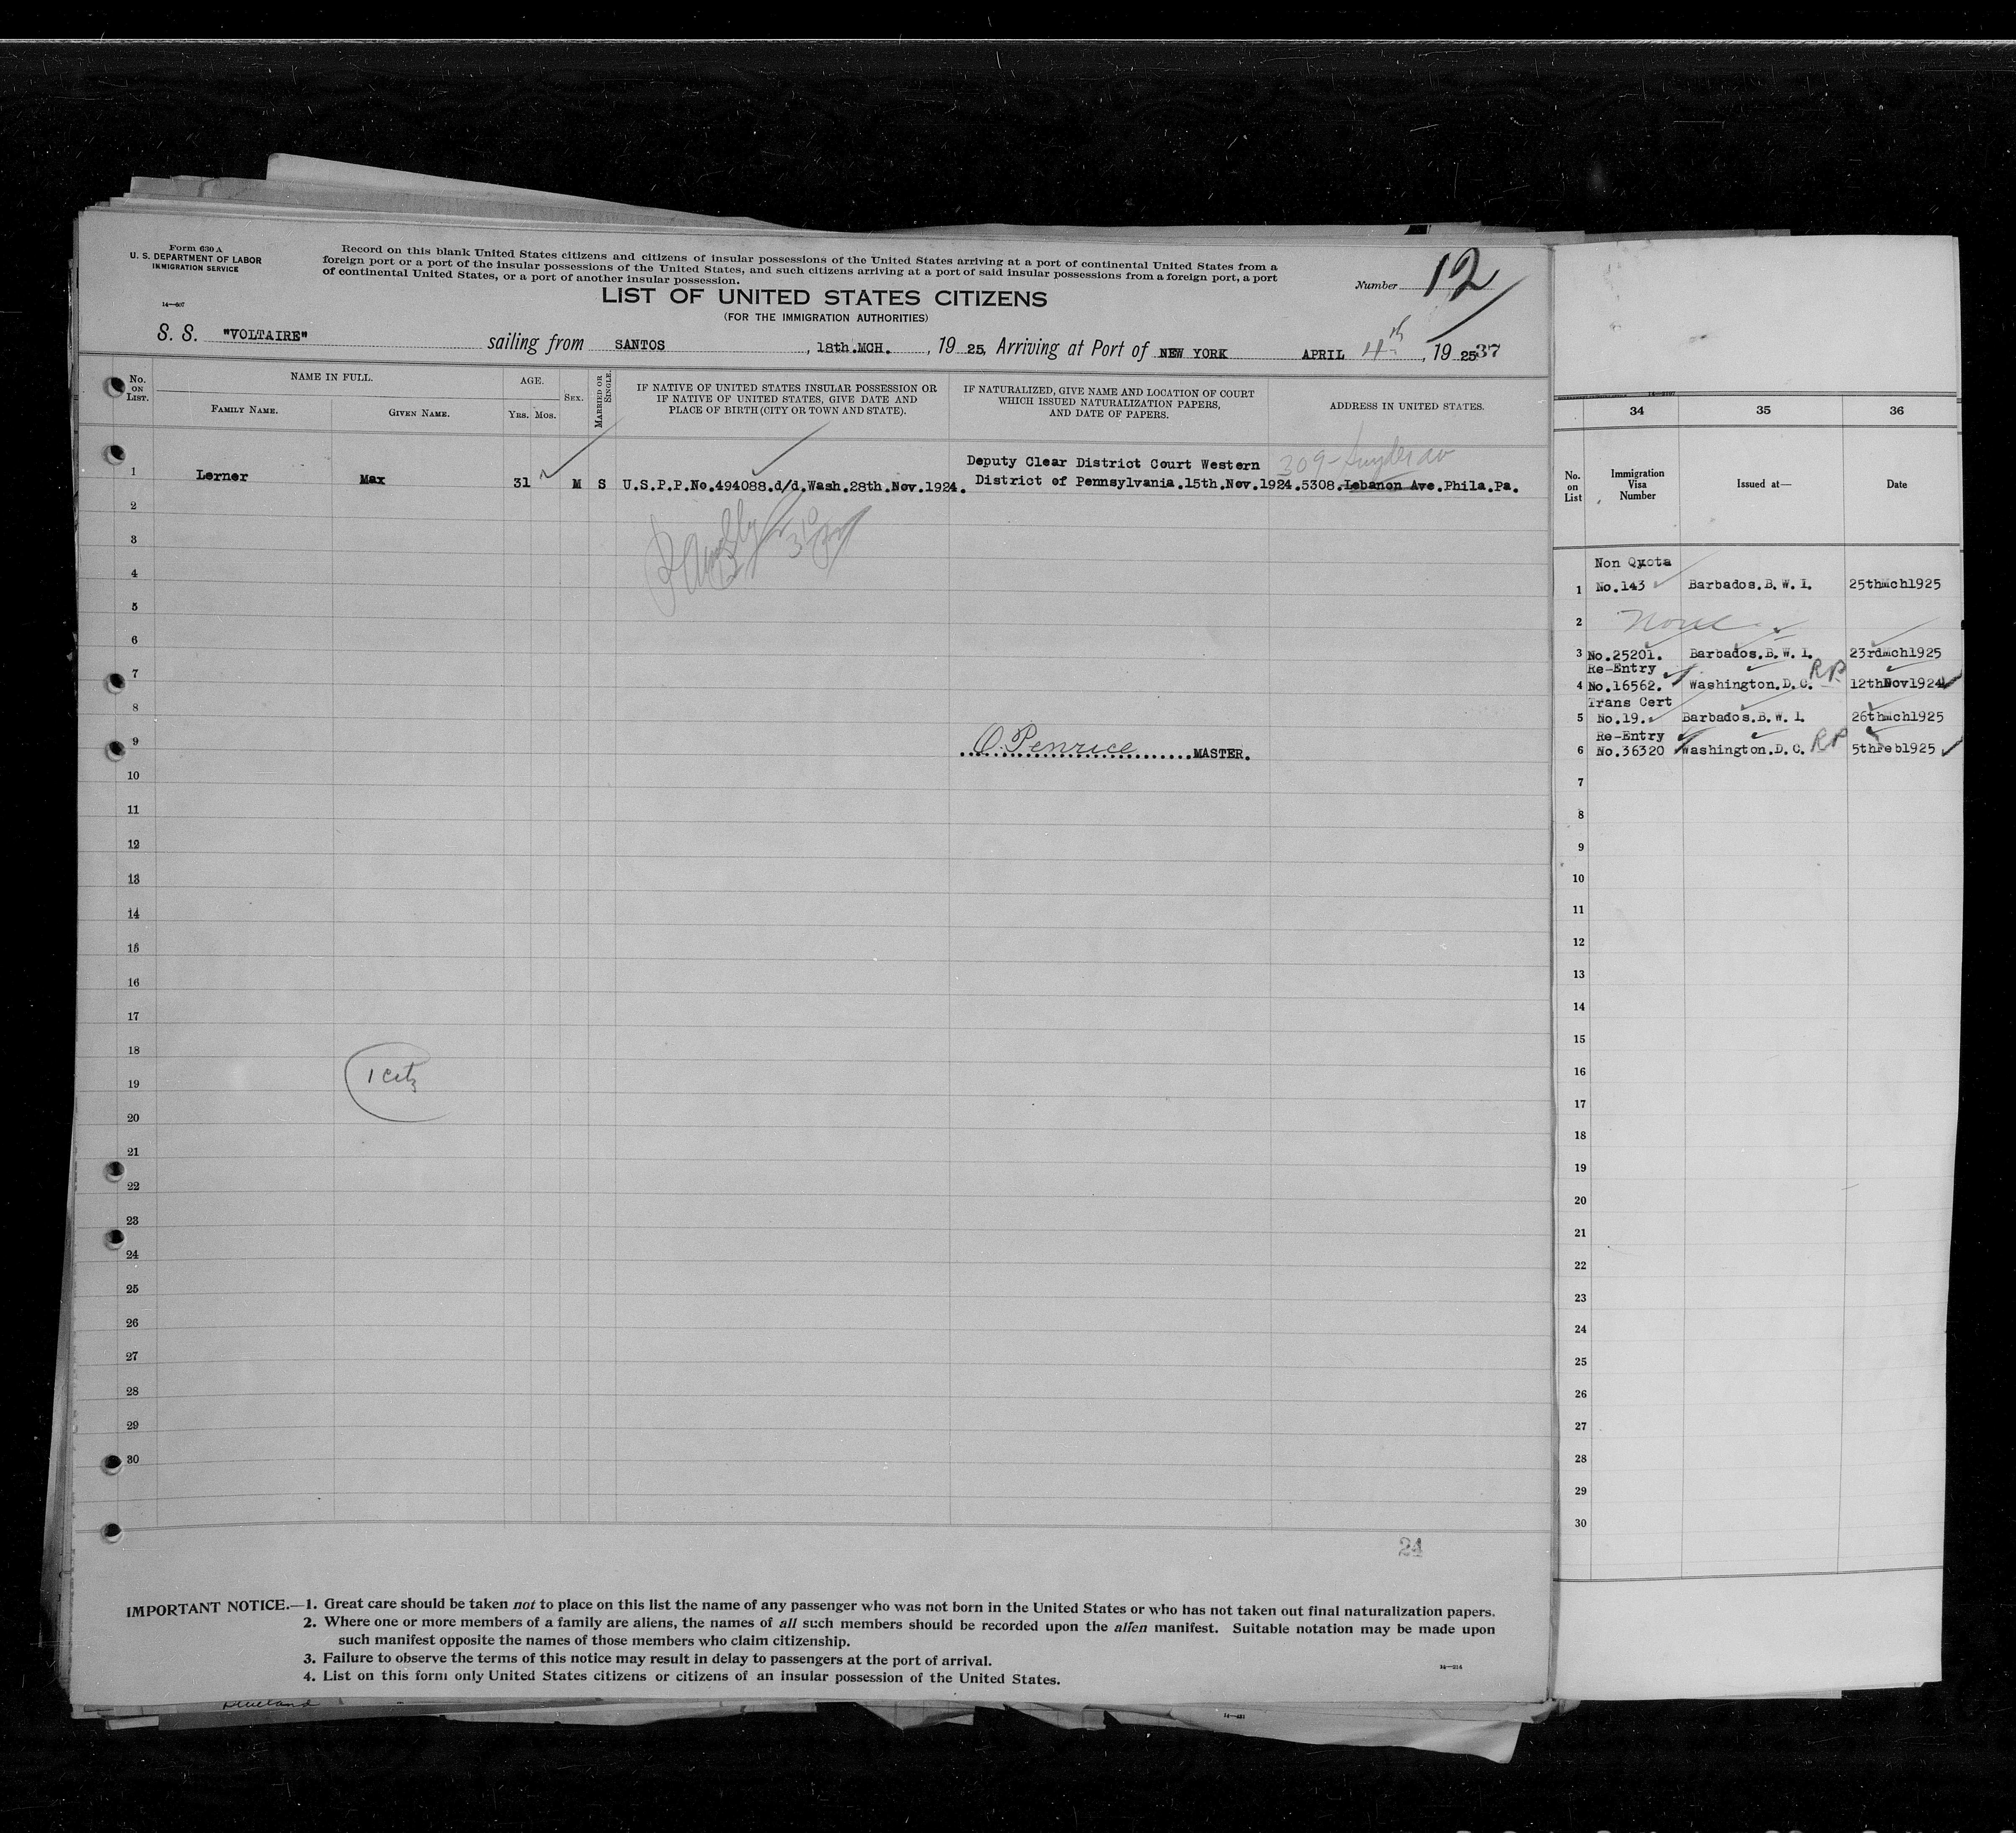 Form 630 A
U. S. DEPARTMENT OF LABOR
IMMIGRATION SERVICE
14—607
Record on this blank United States citizens and citizens of insular possessions of the United States arriving at a port of continental United States from a
foreign port or a port of the insular possessions of the United States, and such citizens arriving at a port of said insular possessions from a foreign port, a port
of continental United States, or a port of another insular possession.
Number 12
LIST OF UNITED STATES CITIZENS
(FOR THE IMMIGRATION AUTHORITIES)
S. S. "VOLTAIRE" sailing from SANTOS, 18th.MCH., 19 25, Arriving at Port of NEW YORK APRIL 4th, 19 25 37
No. ON LIST.
NAME IN FULL.
FAMILY NAME. GIVEN NAME.
AGE.
YRS. MOS.
SEX.
MARRIED OR SINGLE.
IF NATIVE OF UNITED STATES INSULAR POSSESSION OR
IF NATIVE OF UNITED STATES, GIVE DATE AND
PLACE OF BIRTH (CITY OR TOWN AND STATE).
IF NATURALIZED, GIVE NAME AND LOCATION OF COURT
WHICH ISSUED NATURALIZATION PAPERS,
AND DATE OF PAPERS.
ADDRESS IN UNITED STATES.
309- Snyder av
Deputy Clear District Court Western
1 Lerner Max 31 M S U.S.P.P.No.494088.d/d.Wash.28th.Nov.1924. District of Pennsylvania.15th.Nov.1924.5308.Lebanon Ave.Phila.Pa.
2
3
4
5
6
7
8
9 O. Penrice MASTER.
10
11
12
13
14
15
16
17
18
19 1 Citz
20
21
22
23
24
25
26
27
28
29
30
24
IMPORTANT NOTICE.—1. Great care should be taken not to place on this list the name of any passenger who was not born in the United States or who has not taken out final naturalization papers.
2. Where one or more members of a family are aliens, the names of all such members should be recorded upon the alien manifest. Suitable notation may be made upon
such manifest opposite the names of those members who claim citizenship.
3. Failure to observe the terms of this notice may result in delay to passengers at the port of arrival.
4. List on this form only United States citizens or citizens of an insular possession of the United States.
14—214
34 35 36
No. on List
Immigration Visa Number
Issued at—
Date
Non Quota
1 No.143 Barbados.B.W.I. 25thMch1925
2 None
3 No.25201. Barbados.B.W.I. 23rdmch1925
Re-Entry
4 No.16562. Washington.D.C. RP 12thNov1924
Trans Cert
5 No.19. Barbados.B.W.I. 26thmch1925
Re-Entry
6 No.36320 Washington.D.C. RP 5thFeb1925
7
8
9
10
11
12
13
14
15
16
17
18
19
20
21
22
23
24
25
26
27
28
29
30